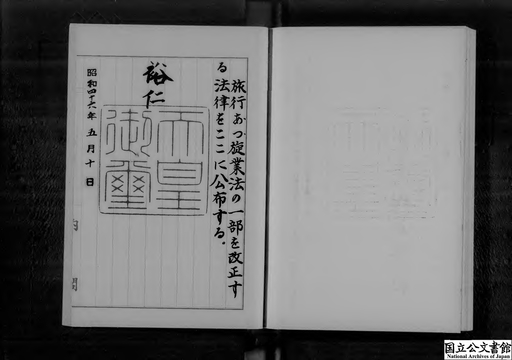 旅行あつ旋業法の一部を改正す
る法律をここに公布する。
裕仁
天皇
御璽
昭和四十六年五月十日
内閣
国立公文書館
National Archives of Japan